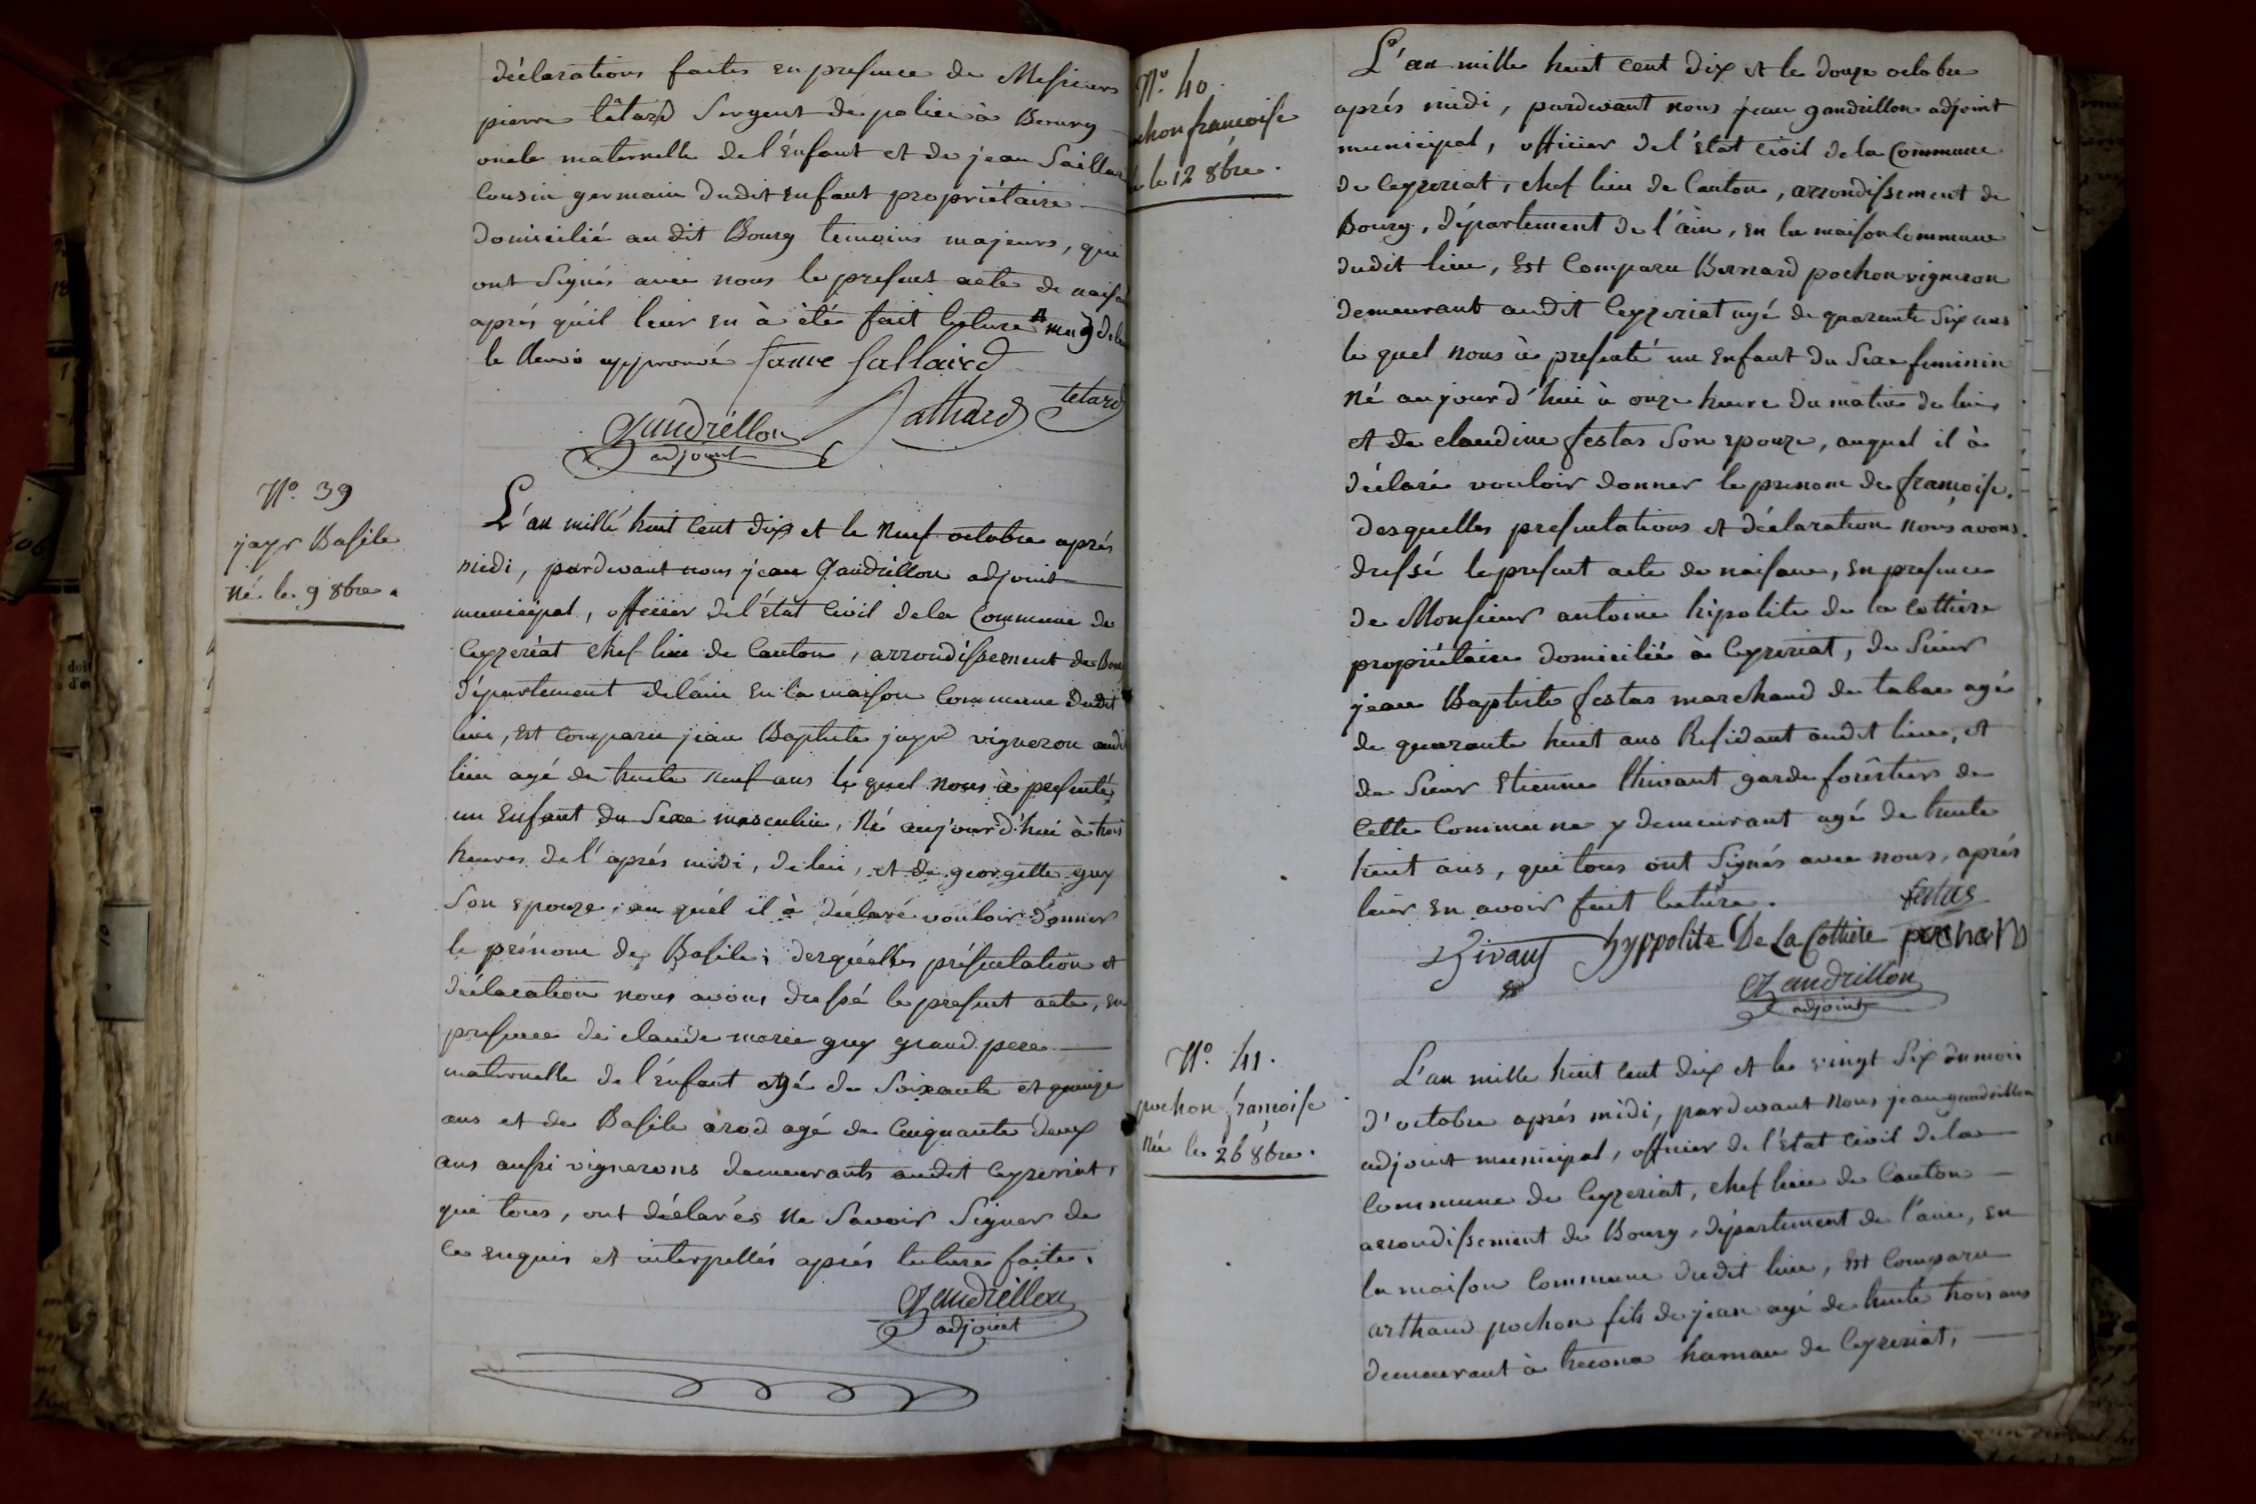 déclarations faites en presence de Messieurs
pierre têtard Sergent de police à Bourg
oncle maternelle de l'Enfant et de jean Saillar
Cousin germain dudit Enfant propriétaire
domicilié au dit Bourg temoins majeurs, qui
ont Signés avec nous le present acte de naissa
aprés qu'il leur en à été fait lecture
le Renvoi approuvé
tetard
Gandrillon
adjoint
N.º 39
jayr Basile
Né le 9 8bre.
L'an mille huit Cent dix et le Neuf octobre aprés
midi, pardevant nous jean Gandrillon adjoint
municipal, officier de l'état Civil dela Commune de
Ceyzeriat chef lieu de Canton, arrondissement de Bourg
département delain en la maison Commune dudit
lieu, Est Comparu jean Baptiste jayr vigneron audit
lieu agé de trente neuf ans le quel nous à presenté
un Enfant du Sexe masculin, Né aujourd'hui à trois
heures de l'aprés midi, de lui, et de georgette guy
Son epouze, au quél il à déclaré vouloir donner
le prénom de Basile; desquélles présentation et
déclaration nous avons dressé le present acte, en
presence de claude marie guy grand pere
maternelle de l'Enfant agé de Soixante et quinze
ans et de Basile arod agé de Cinquante deux
ans aussi vignerons demeurants audit Ceyzeriat,
qui tous, ont déclarés ne Savoir Signer de
Ce enquis et interpellés aprés lecture faite.
Gandrillon
adjoint
N.º 40.
chon francoise
le 12 8bre.
L'an mille huit Cent dix et le douze octobre
aprés midi, pardevant nous jean gandrillon adjoint
municipal, officier de l'Etat Civil de la Commune
de Ceyzeriat, chef lieu de Canton, arrondissement de
Bourg, département de l'ain, en la maison Commune
dudit lieu, Est Comparu Bernard pochon vigneron
demeurant audit Ceyzeriat agé de quarante Six ans
le quel nous à presenté un Enfant du Sexe feminin
Né aujourd'hui à onze heure du matin de lui
et de claudine festas Son epouze, auquel il à
déclaré vouloir donner le prenom de francoise.
desquelles presentations et déclaration nous avons
dressé le present acte de naissance, en presence
de Monsieur antoine hipolite de la Cottière
propriétaire domicilié à Ceyzeriat, de Sieur
jean Baptiste festas marchand de tabac agé
de quarante huit ans Residant audit lieu, et
de Sieur Etienne thivant garde forêstier de
Cette Commune y demeurant agé de trente
huit ans, qui tous ont Signés avec nous, aprés
leur en avoir fait lecture.
festas
Hyppolite De La Cottiere pochon
Gandrillon
adjoint
N.º 41.
pochon francoise
Née le 26 8bre.
L'an mille huit Cent dix et le vingt Six du mois
d'octobre aprés midi, pardevant nous jean gandrillon
adjoint municipal, officier de l'état Civil de la
Commune de Ceyzeriat, chef lieu de Canton
arrondissement de Bourg, département de l'ain, en
la maison Commune dudit lieu, Est Comparu
arthaud pochon fils de jean agé de trente trois ans
demeurant à hamau de Ceyzeriat,